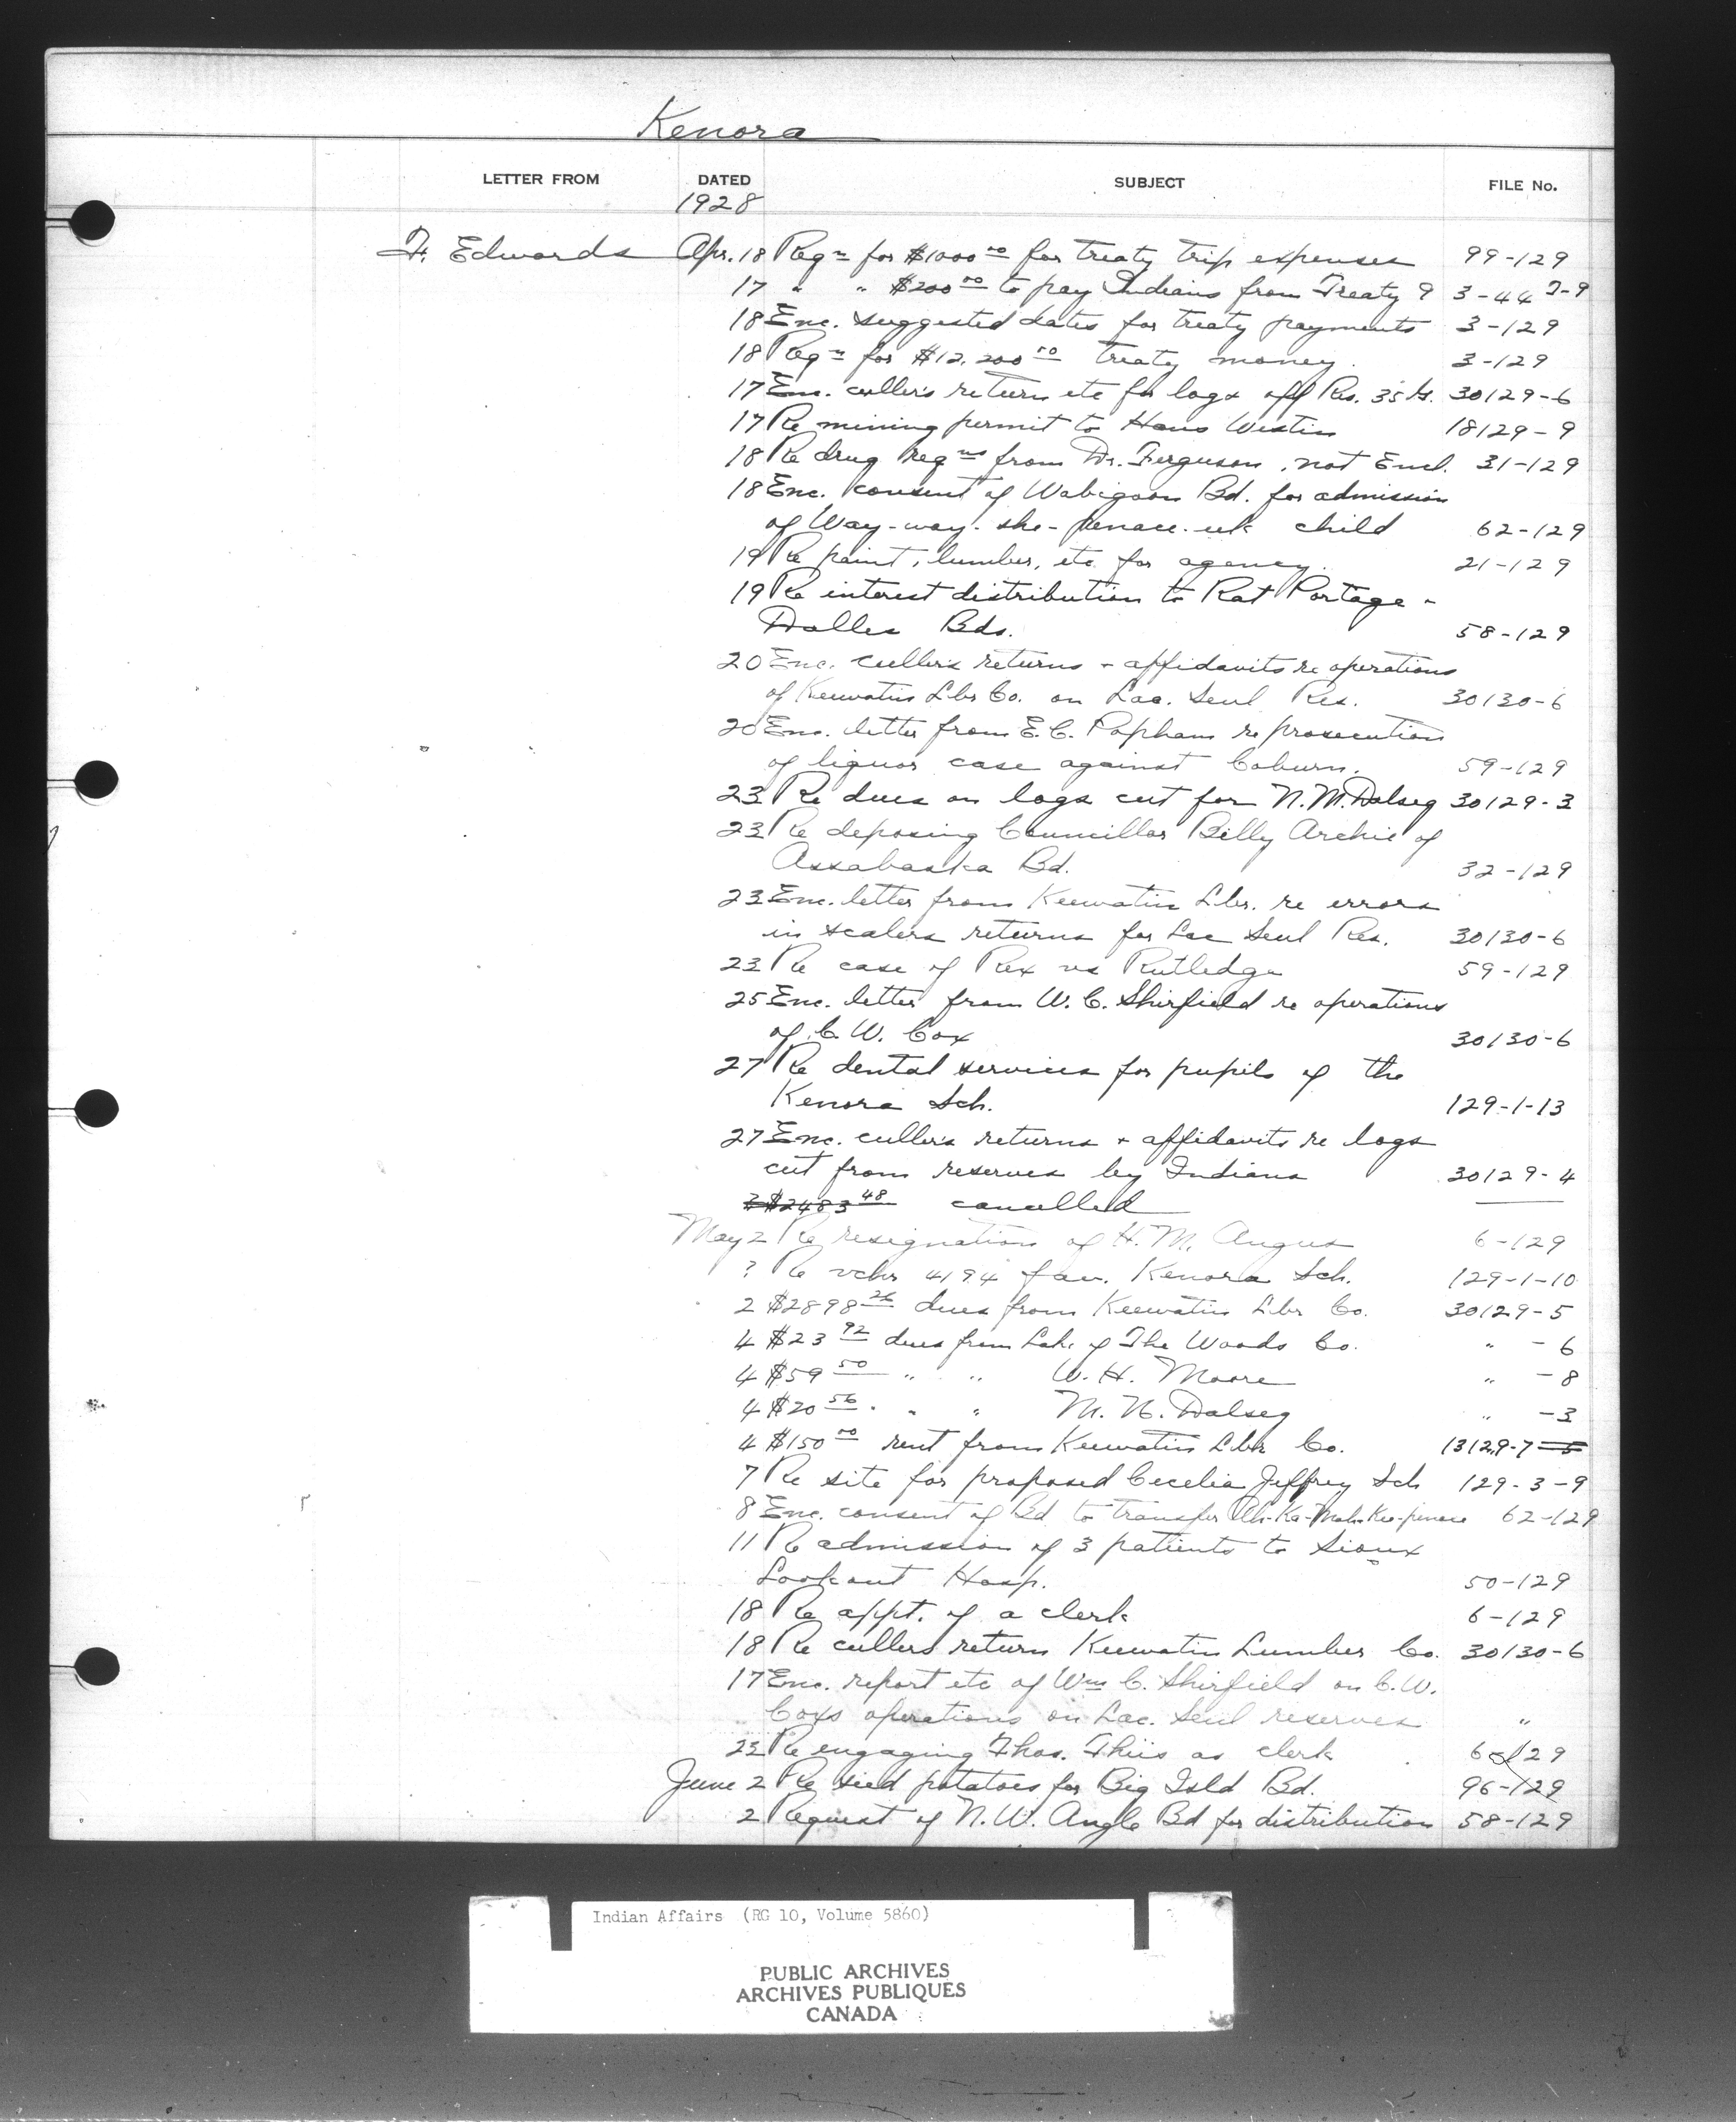 Kenora
LETTER FROM DATED SUBJECT FILE No.
1928
F. Edwards Apr. 18 Reqn for $1000.00 for treaty trip expenses 99-129
17 " " $200.00 to pay Indians from Treaty 9 3-44 T-9
18 Enc. suggested dates for treaty payments 3-129
18 Reqn for $12,200.00 treaty money. 3-129
17 Enc. culler's return etc for logs off Res. 35 30129-6
17 Re mining permit to Hans Westin 18129-9
18 Re drug reqns from Dr. Ferguson, not Encl. 31-129
18 Enc. consent of Wabigoon Bd. for admission
of Way-way-she-penace-uk child 62-129
19 Re paint, lumber, etc for agency. 21-129
19 Re interest distribution to Rat Portage -
Dalles Bds. 58-129
20 Enc. cullers returns + affidavits re operations
of Keewatin Lbr Co. on Lac. Seul Res. 30130-6
20 Enc. letter from E.C. Popham re prosecution
of liquor case against Coburn. 59-129
23 Re dues on logs cut for N.M. Dalseg 30129-3
23 Re deposing Councillor Billy Archie of
Assabaska Bd. 32-129
23 Enc. letter from Keewatin Lbr. re errors
in scalers returns for Lac Seul Res. 30130-6
23 Re case of Rex vs Rutledge 59-129
25 Enc. letter from W.C. Shirfield re operations
of C.W. Cox 30130-6
27 Re dental services for pupils of the
Kenora Sch. 129-1-13
27 Enc. cullers returns + affidavits re logs
cut from reserves by Indians 30129-4
? $2483.48 cancelled
May 2 Re resignation of H.M. Angus 6-129
? Re vchr 4194 fav. Kenora Sch. 129-1-10
2 $2898.26 dues from Keewatin Lbr Co. 30129-5
4 $23.92 dues from Lake of The Woods Co. " -6
4 $59.50 " " W.H. Moore " -8
4 $20.56 " " " M.N. Dalseg " -3
4 $150.00 rent from Keewatin Lbr Co. 13129-7-5
7 Re site for proposed Cecelia Jeffrey Sch 129-3-9
8 Enc. consent of Bd to transfer Ah-Ka-Mah-Kee-penace 62-129
11 Re admission of 3 patients to Sioux
Lookout Hosp. 50-129
18 Re appt. of a clerk 6-129
18 Re cullers return Keewatin Lumber Co. 30130-6
17 Enc. report etc of Wm C. Shirfield on C.W.
Coxs operations on Lac. Seul reserves "
22 Re engaging Thos. Thiis as clerk 6-129
June 2 Re seed potatoes for Big Isld Bd. 96-129
2 Request of N.W. Angle Bd for distribution 58-129
Indian Affairs (RG 10, Volume 5860)
PUBLIC ARCHIVES
ARCHIVES PUBLIQUES
CANADA